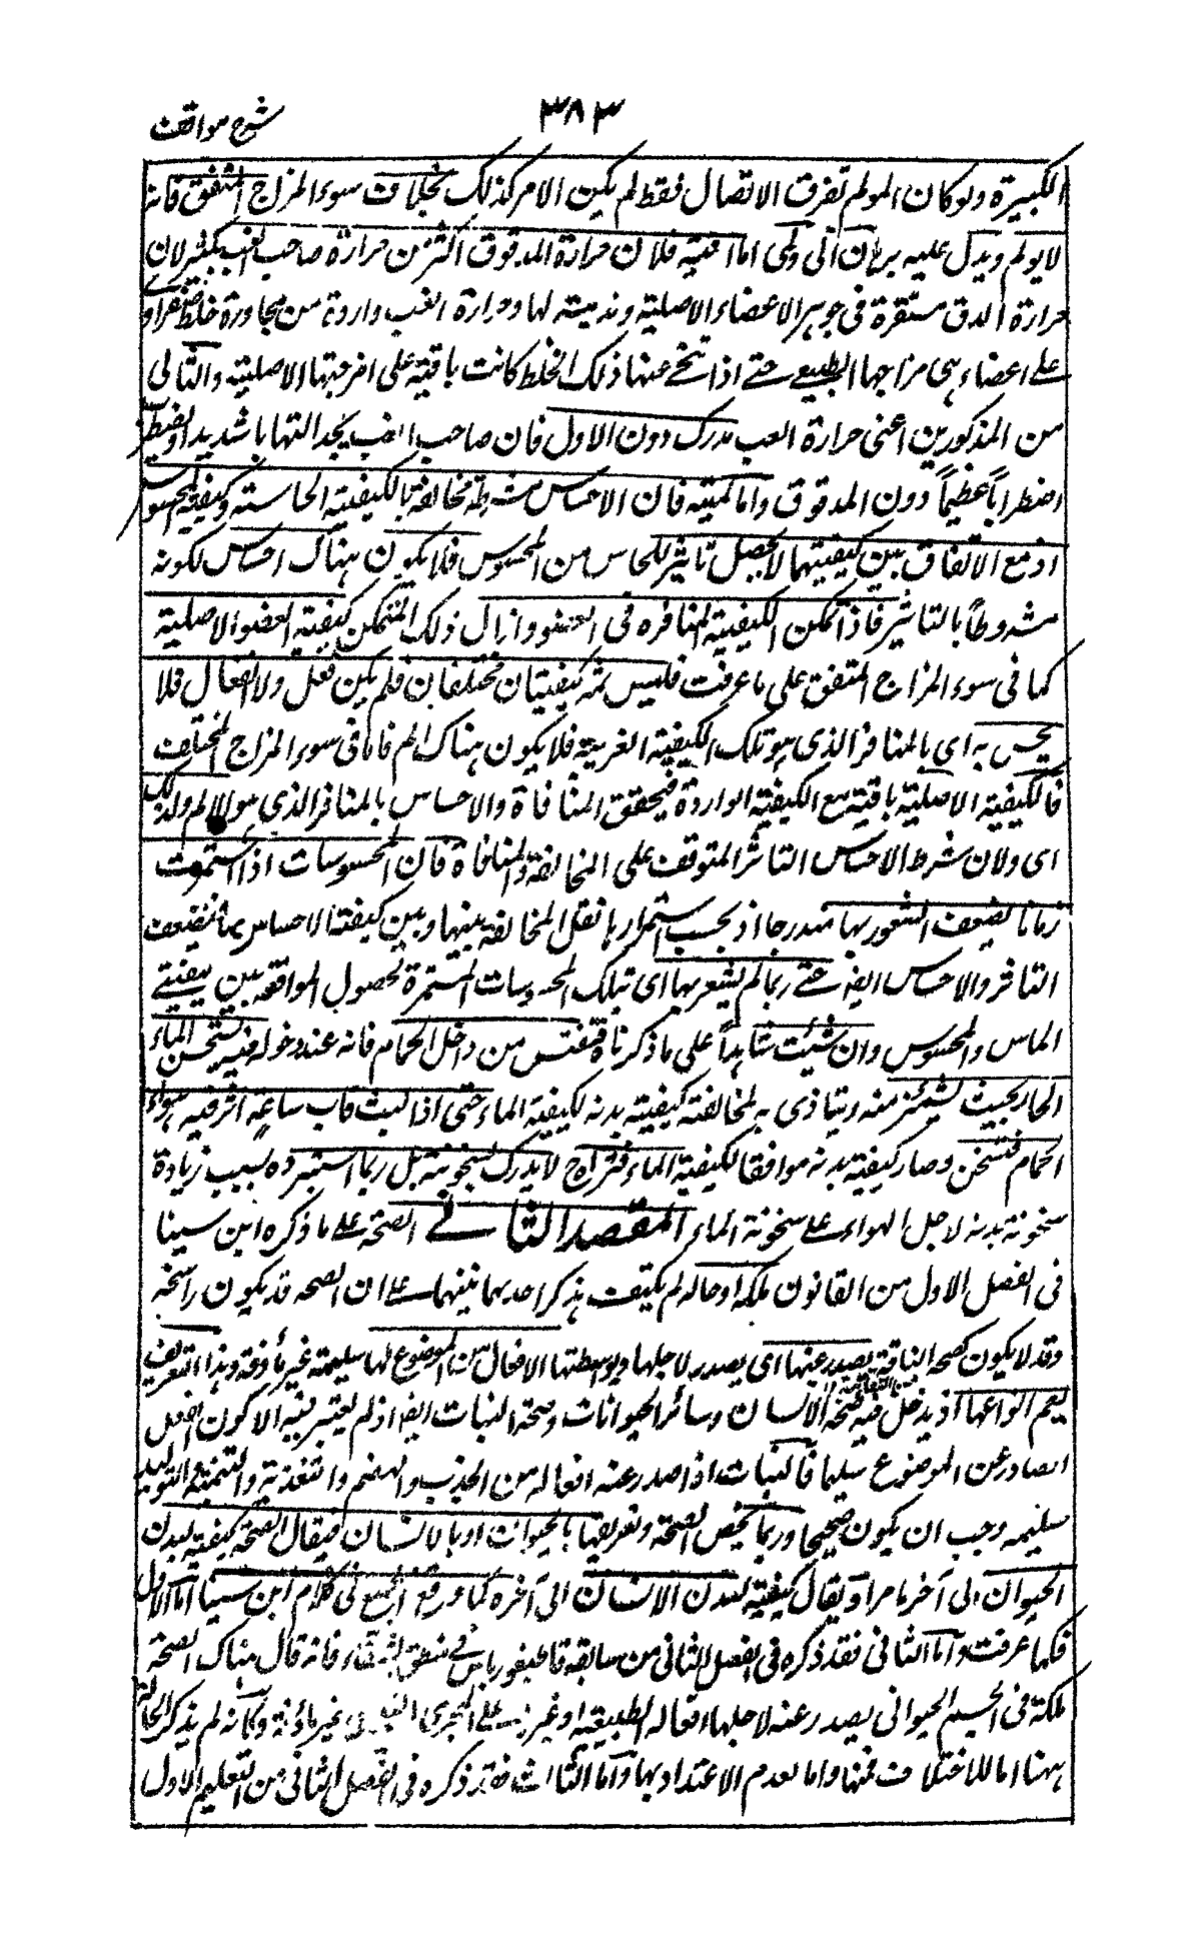 شرح مواقف
٣٨٣
الكبيرة ولو كان المولم تفرق الاتصال فقط لم يكن الامر كذلك بخلاف سوء المزاج المتفق فانه
لا يولم ويدل عليه برهان انى ولمى اما انيته فلان حرارة المدقوق اكثر من حرارة صاحب الغب بكثير لان
حرارة الدق مستقرة فى جوهر الاعضاء الاصلية ومذيبة لها وحرارة الغب واردة من مجاورة خلط صفراوى
على اعضاء هى مزاجها الطبيعى حتى اذا تنحى عنها ذلك الخلط كانت باقية على امزجتها الاصلية والثانى
من المذكورين اعنى حرارة الغب مدرك دون الاول فان صاحب الغب يجد التهابا شديدا ويضطرب
اضطراباً عظيماً دون المدقوق واما لميته فلان الاحساس شرطه مخالفة ما لكيفية الحاسة وكيفية المحسوس
اذ مع الاتفاق بين كيفيتيهما لا يحصل تاثير للحاس من المحسوس فلا يكون هناك احساس لكونه
مشروطاً بالتاثير فاذا تمكن الكيفية المنافرة فى العضو وازال ذلك المتمكن كيفية العضو الاصلية
كما فى سوء المزاج المتفق على ما عرفت فليس ثمه كيفيتان مختلفان فلم يكن فعل ولا انفعال فلا
يحس به اى بالمنافر الذى هو تلك الكيفية الغريبة فلا يكون هناك الم فاما فى سوء المزاج المختلف
فالكيفية الاصلية باقية مع الكيفية الواردة فيتحقق المنافاة والاحساس بالمنافر الذى هو الالم ولذلك
اى ولان شرط الاحساس التاثر المتوقف على المخالفة والمنافاة فان المحسوسات اذا استمرت
زمانا يضعف الشعور بها متدرجا اذ بحسب استمرارها تقل المخالفة بينها وبين كيفية الاحساس بها فيضعف
التافر والاحساس ايضا حتى ربما لم يشعر بها اى بتلك المحسوسات المستمرة لحصول الموافقة بين كيفيتى
الماس والمحسوس وان شئت شاهداً على ما ذكرناه فتفتس من داخل الحمام فانه عند دخوله فيه يستسخن الماء
الحار بحيث يشمئز منه ويتاذى به لمخالفة كيفية بدنه لكيفية الماء حتى اذا لبث فاب ساعة اثر فيه هواء
الحمام فتسخن وصار كيفية بدنه موافقا لكيفية الماء فتراج لا يدرك سخونته بل ربما استبرده بسبب زيادة
سخونة بدنه لاجل الهواء على سخونة الماء المقصد الثانى الصحة على ما ذكره ابن سينا
فى الفصل الاول من القانون ملكة او حاله لم يكتف بذكر احديهما تنبيها على ان الصحه قد يكون راسخة
وقد لا يكون كصحة الناقه يصدر عنها اى يصدر لاجلها وبوسطتها الافعال من الموضوع لها سليمة غير ماوفة وهذا التعريف
يعم انواعها اذ يدخل فيه صحة الانسان وسائر الحيوانات وصحة النبات ايضا اذ لم يعتبر فيه الا كون الفعل
الصادر عن الموضوع سليما فالنبات اذا صدر عنه افعاله من الجذب والهضم والتغذية والتنمية والتوليد
سليمه وجب ان يكون صحيحا وربما تخص الصحة وتعريفها بالحيوان او بالانسان فيقال الصحة كيفية لبدن
الحيوان الى آخر ما مر او يقال كيفية لبدن الانسان الى آخره كما وقع الجميع فى كلام ابن سينا اما الاول
فكما عرفت واما الثانى فقد ذكره فى الفصل الثانى من سابقة قاطيغورياس فى منطق الشفاء فانه قال هناك الصحة
ملكة فى الجسم الحيوانى يصدر عنه لاجلها افعاله الطبيعية او غيرها على المجرى الطبيعى غير ماوفة وكانه لم يذكر الحالة
ههنا اما للاختلاف فيها واما لعدم الاعتداد بها واما الثالث فقد ذكره فى الفصل الثانى من التعليم الاول